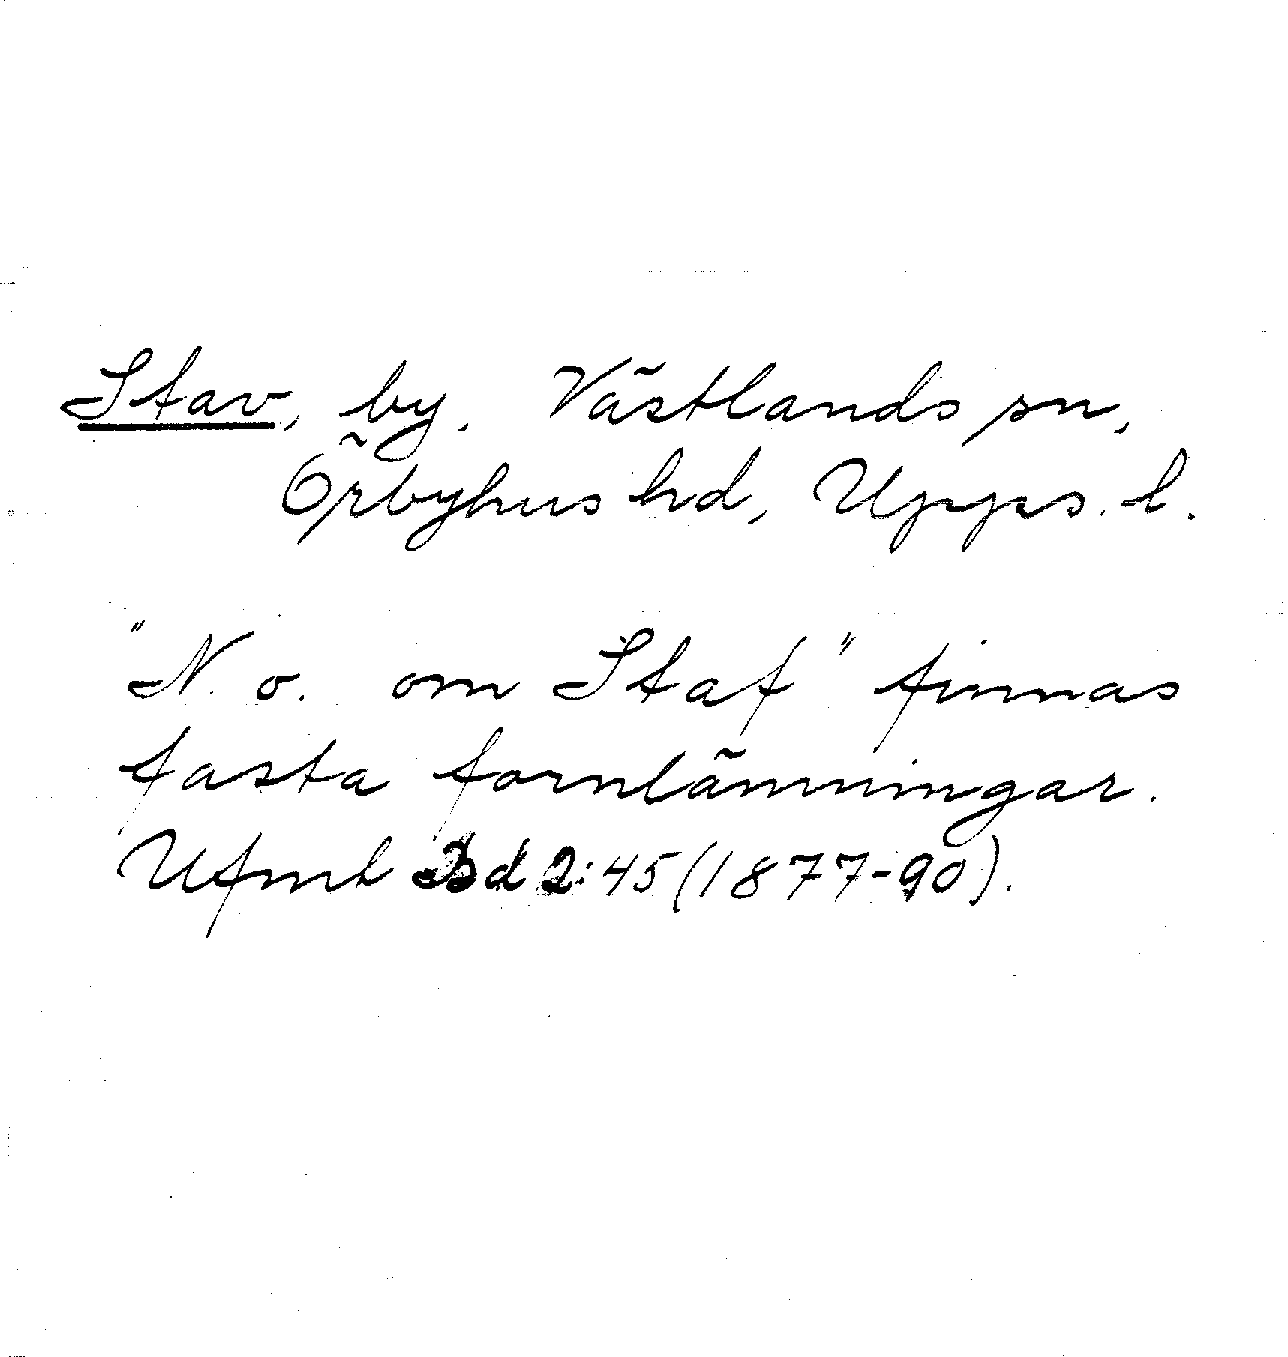 Stav, by, Västlands sn,
Örbyhus hd, Upps. l.
"N. o. om Staf" finnas
fasta fornlämningar.
Ufmt Bd 2:45 (1877-90).